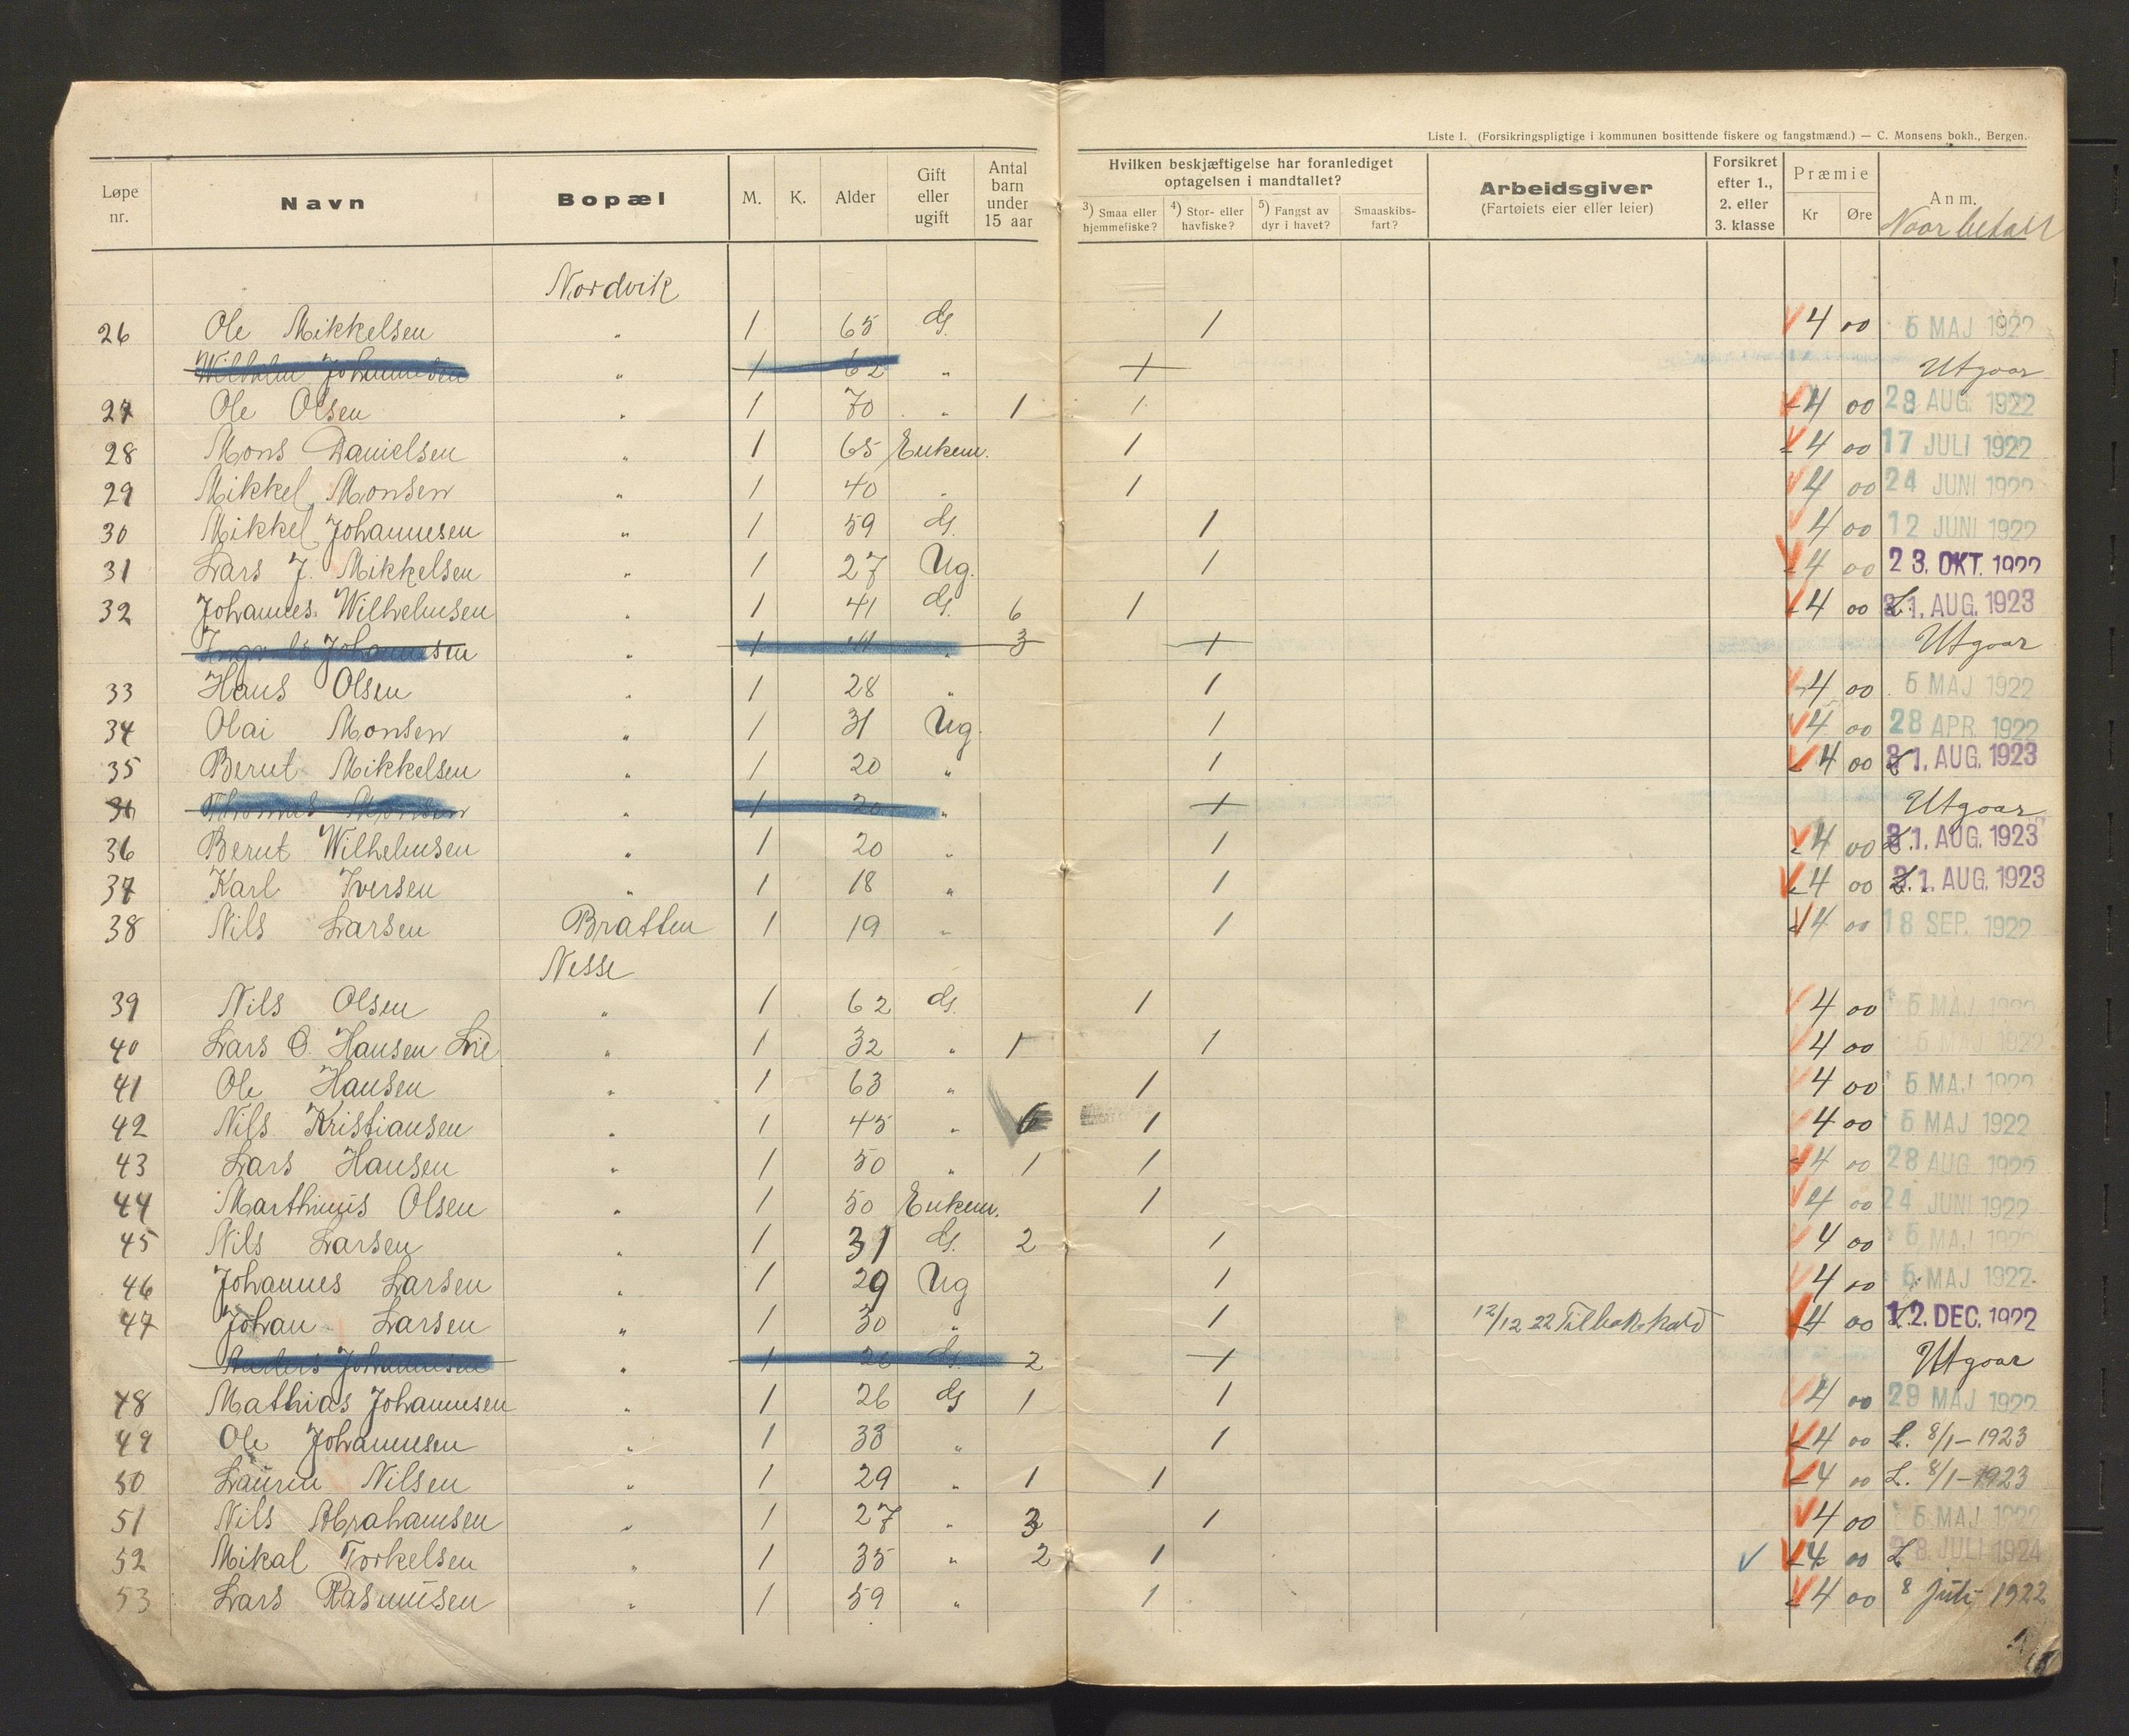 Liste I. (Forsikringspligtige i kommunen bosittende fiskere og fangstmænd.) — C. Monsens bokh., Bergen.
Løpe nr. Navn Bopæl M. K. Alder Gift eller ugift Antal barn under 15 aar Hvilken beskjæftigelse har foranlediget optagelsen i mandtallet? 3) Smaa eller hjemmefiske? 4) Stor- eller havfiske? 5) Fangst av dyr i havet? Smaaskibsfart? Arbeidsgiver (Fartøiets eier eller leier) Forsikret efter 1., 2. eller 3. klasse Præmie Kr Øre Anm. Naar betalt
Nordvik
26 Ole Mikkelsen " 1 65 G. 1 4 00 5 MAJ 1922
Wilhelm Johannesen " 1 62 " 1 Utgaar
27 Ole Olsen " 1 70 " 1 1 4 00 28 AUG. 1922
28 Mons Danielsen " 1 65 Enkem. 1 4 00 17 JULI 1922
29 Mikkel Monsen " 1 40 " 1 4 00 24 JUNI 1922
30 Mikkel Johannesen " 1 59 G. 1 4 00 12 JUNI 1922
31 Lars J. Mikkelsen " 1 27 Ug. 1 4 00 23. OKT. 1922
32 Johannes Wilhelmsen " 1 41 G. 6 1 4 00 L. 31. AUG. 1923
Johannesen " 1 " 3 1 Utgaar
33 Hans Olsen " 1 28 " 1 4 00 5 MAJ 1922
34 Olai Monsen " 1 31 Ug. 1 4 00 28 APR. 1922
35 Bernt Mikkelsen " 1 20 " 1 4 00 L. 31. AUG. 1923
Thomas Monsen " 1 20 " 1 Utgaar
36 Bernt Wilhelmsen " 1 20 " 1 4 00 L. 31. AUG. 1923
37 Karl Iversen " 1 18 " 1 4 00 L. 31. AUG. 1923
38 Nils Larsen Bratten 1 19 " 1 4 00 18 SEP. 1922
Nesse
39 Nils Olsen " 1 62 G. 1 4 00 5 MAJ 1922
40 Lars O. Hansen Lie " 1 32 " 1 1 4 00 5 MAJ 1922
41 Ole Hansen " 1 63 " 1 4 00 5 MAJ 1922
42 Nils Kristiansen " 1 45 " 6 1 4 00 5 MAJ 1922
43 Lars Hansen " 1 50 " 1 1 4 00 28 AUG 1922
44 Marthinus Olsen " 1 50 Enkem. 1 4 00 24 JUNI 1922
45 Nils Larsen " 1 31 G. 2 1 4 00 5 MAJ 1922
46 Johannes Larsen " 1 29 Ug 1 4 00 5 MAJ 1922
47 Johan Larsen " 1 30 " 1 12/12 22 Tilbakekald 4 00 12. DEC. 1922
Anders Johannesen " 1 26 G. 2 1 Utgaar
48 Mathias Johannesen " 1 26 G 1 1 4 00 29 MAJ 1922
49 Ole Johannesen " 1 33 " 1 4 00 L. 8/1-1923
50 Laurin Nilsen " 1 29 " 1 1 4 00 L. 8/1-1923
51 Nils Abrahamsen " 1 27 " 3 1 4 00 5 MAJ 1922
52 Mikal Torkelsen " 1 35 " 2 1 4 00 L 28. JULI 1924
53 Lars Rasmusen " 1 59 " 1 4 00 8 Juli 1922